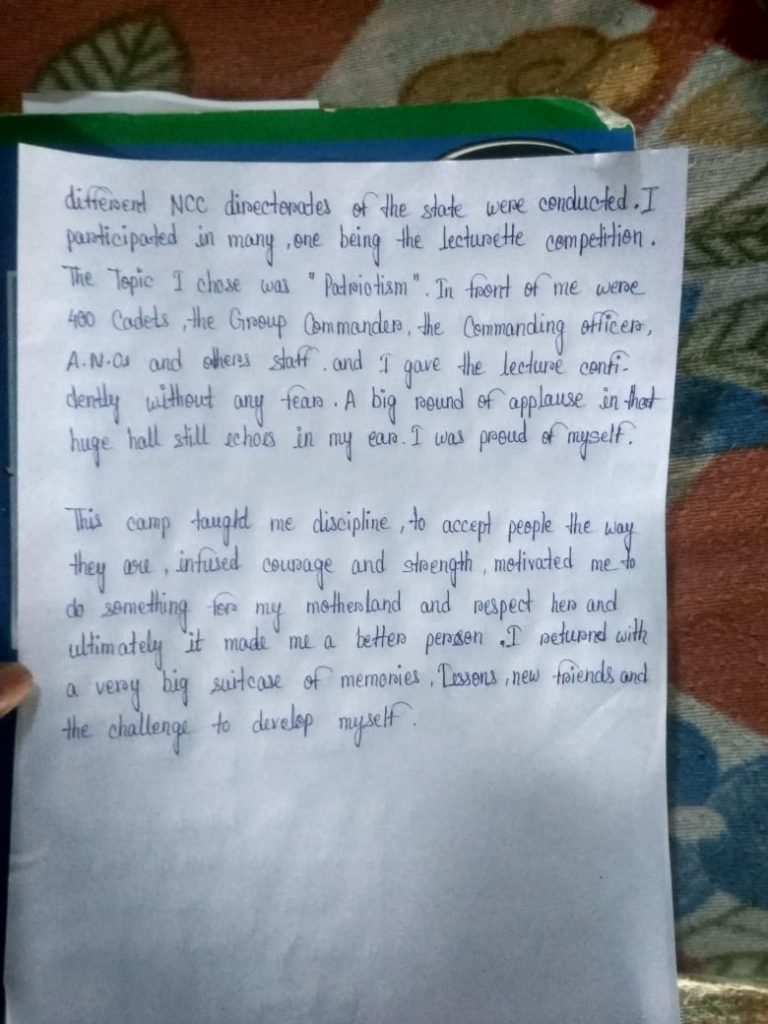 different NCC directorates of the state were conducted. I
participated in many, one being the lecturette competition.
The Topic I chose was "Patriotism". In front of me were
400 Cadets, the Group Commander, the Commanding officer,
A.N.Os and others staff. and I gave the lecture confi-
dently without any fear. A big round of applause in that
huge hall still echos in my ear. I was proud of myself.

This camp taught me discipline, to accept people the way
they are, infused courage and strength, motivated me to
do something for my motherland and respect her and
ultimately it made me a better person. I returnd with
a very big suitcase of memories, Lessons, new friends and
the challenge to develop myself.